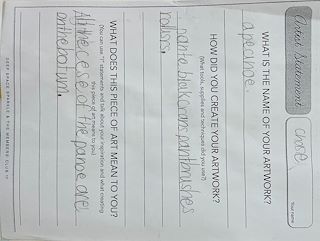 Artist Statement
chose
Your name
WHAT IS THE NAME OF YOUR ARTWORK?
a peanoe.
HOW DID YOU CREATE YOUR ARTWORK?
(What tools, supplies and techniques did you use?)
pante blak crans pantbrushes
WHAT DOES THIS PIECE OF ART MEAN TO YOU?
(You can use "I" statements and talk about your inspiration and what creating
this piece of art means to you)
All the cese of the panoe are
on the botum.
DEEP SPACE SPARKLE & THE MEMBERS CLUB